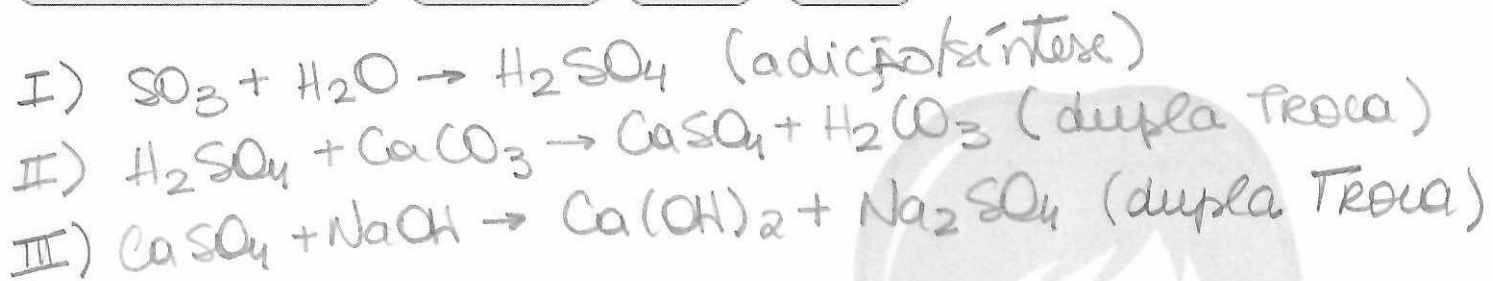 I) SO3 + H2O → H2SO4 (adição/síntese)
II) H2SO4 + CaCO3 → CaSO4 + H2CO3 (dupla TROCA)
III) CaSO4 + NaOH → Ca(OH)2 + Na2SO4 (dupla TROCA)